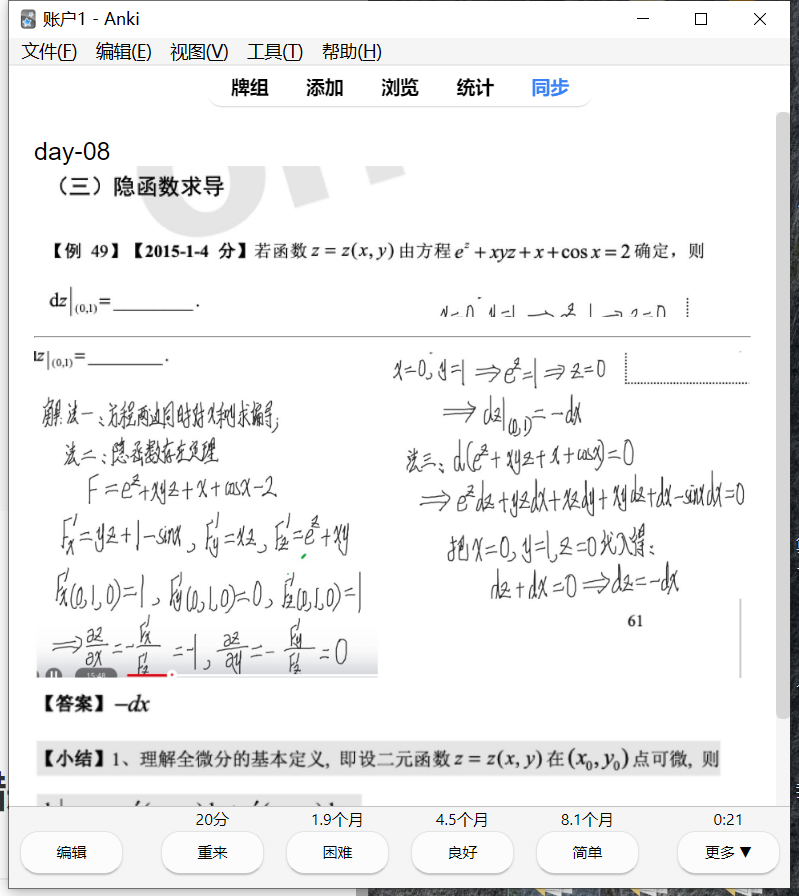 账户1 - Anki
文件(F) 编辑(E) 视图(V) 工具(T) 帮助(H)
牌组 添加 浏览 统计 同步
day-08
（三）隐函数求导
【例 49】【2015-1-4 分】若函数 z = z(x, y) 由方程 e^z + xyz + x + cos x = 2 确定，则
dz|(0,1)=________.
dz|(0,1)=________.
解: 法一: 方程两边同时对x和y求偏导;
法二: 隐函数存在定理
F=e^z+xyz+x+cosx-2
F'x=yz+1-sinx, F'y=xz, F'z=e^z+xy
F'x(0,1,0)=1, F'y(0,1,0)=0, F'z(0,1,0)=1
⇒∂z/∂x=-F'x/F'z=-1, ∂z/∂y=-F'y/F'z=0
15:48
x=0, y=1 ⇒e^z=1⇒z=0
⇒dz|(0,1)=-dx
法三: d(e^z+xyz+x+cosx)=0
⇒e^zdz+yzdx+xzdy+xydz+dx-sinxdx=0
把x=0, y=1, z=0代入得:
dz+dx=0⇒dz=-dx
61
【答案】-dx
【小结】1、理解全微分的基本定义, 即设二元函数 z = z(x, y) 在 (x₀, y₀) 点可微, 则
20分 1.9个月 4.5个月 8.1个月 0:21
编辑 重来 困难 良好 简单 更多▼